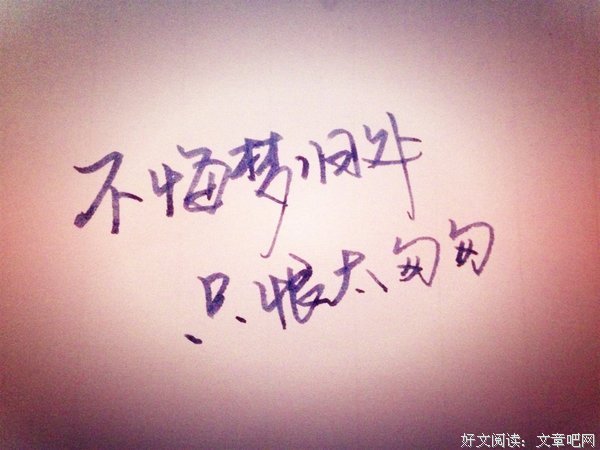 不悔梦归处
只恨太匆匆
好文阅读：文章吧网